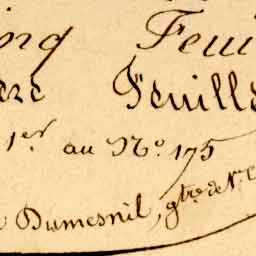 inq Feui
ère Feuille
1er au No. 175
Dumesnil, gbre de N.